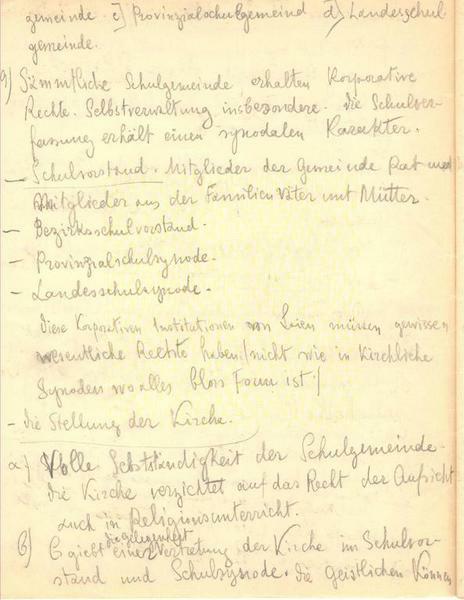 gemeinde c) Provinzialschulgemeind d) Landesschul
gemeinde.
9) Sämmtliche Schulgemeinde erhalten Korporative
Rechte. Selbstverwaltung insbesondere. die Schulver-
fassung erhält einen synodalen Karakter.
– Schulvorstand. Mitglieder der Gemeinde Rat und
Mitglieder aus der Familien Väter und Mütter.
– Bezirksschulvorstand.
– Provinzialschulsynode.
– Landesschulsynode.
diese Korporativen Institutionen von Laien müssen gewissen
wesentliche Rechte haben! (nicht wie in Kirchliche
Synoden wo alles blos Form ist!)
– die Stellung der Kirche.
α) Volle Selbstständigkeit der Schulgemeinde.
die Kirche verzichtet auf das Recht der Aufsicht
auch in Religiunsunterricht.
die gelegenheit
β) Es giebt einer Vertretung der Kirche im Schulvor-
stand und Schulsynode. die geistlichen Können